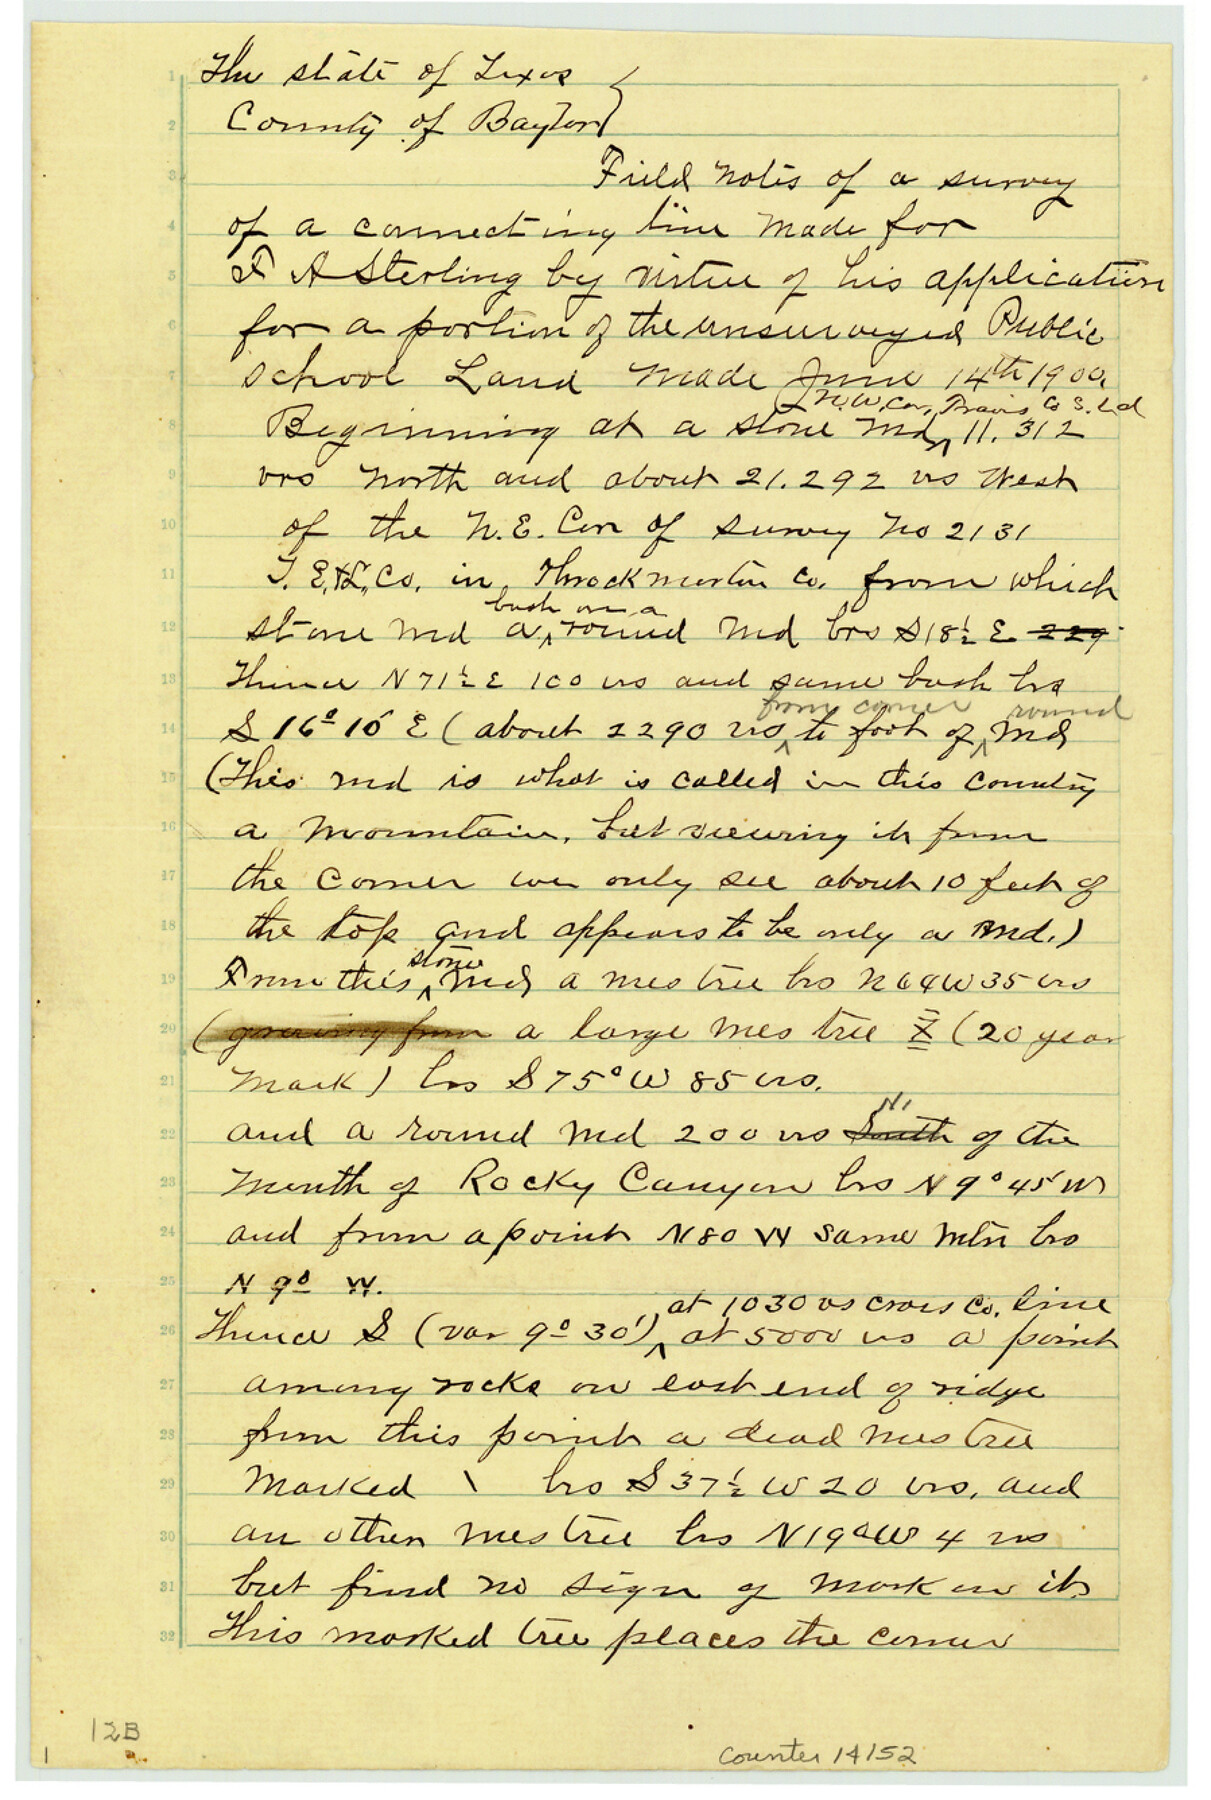 The state of Texas
County of Baylor
Field notes of a survey
of a connecting line made for
F A Sterling by virtue of his application
for a portion of the unsurveyed Public
school Land made June 14th 1900
N.W. Cor, Travis Co S. Ld
Beginning at a stone Md, 11.312
vrs North and about 21.292 vrs West
of the N.E. Cor of survey No 2131
T. E. & L. Co. in Throckmorton Co. from which
bush on a
stone Md a round Md brs S18½ E 229
Thence N71½ E 100 vrs and same bush brs
from corner round
S 16° 10' E (about 2290 vrs to foot of Md
(This md is what is called in this country
a mountain, but viewing it from
the corner we only see about 10 feet of
the top and appears to be only a Md.)
stone
From this Md a mes tree brs N64W 35 vrs
(growing from a large mes tree X (20 year
mark) brs S75° W 85 vrs.
N.
and a round Md 200 vrs South of the
Mouth of Rocky Canyon brs N 9° 45' W
and from a point N80 W same Mtn brs
N 9° W.
at 1030 vs cross Co. line
Thence S (var 9° 30') at 5000 vrs a point
among rocks on east end of ridge
from this point a dead mes tree
Marked \ brs S37½ W 20 vrs, and
an other mes tree brs N19° W 4 vrs
but find no sign of mark on it
This marked tree places the corner
12B
1
Counter 14152